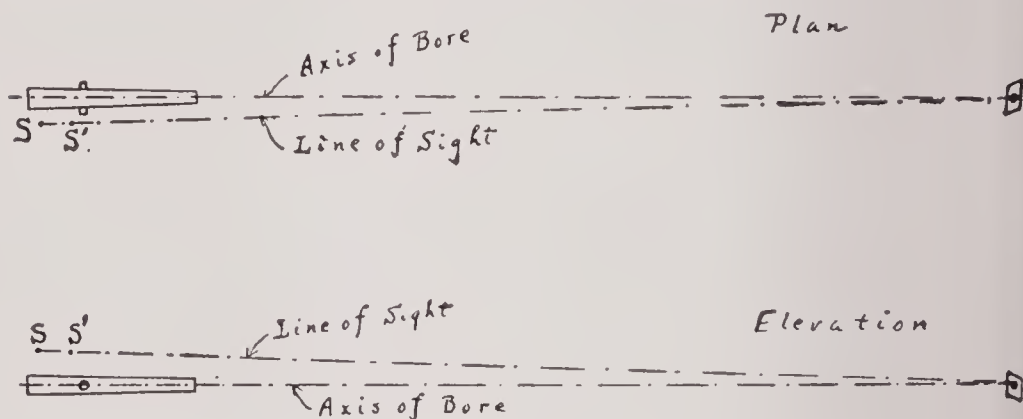 Plan
Axis of Bore
S S'.
Line of Sight
S S'
Line of Sight
Elevation
Axis of Bore